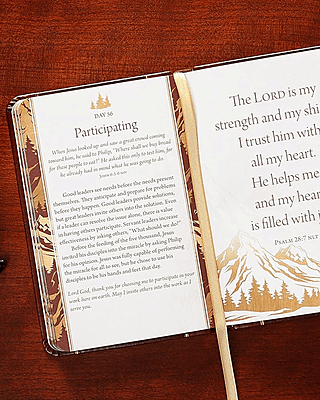 DAY 56
Participating
When Jesus looked up and saw a great crowd coming
toward him, he said to Philip, "Where shall we buy bread
for these people to eat?" He asked this only to test him, for
he already had in mind what he was going to do.
JOHN 6:5-6 NIV
Good leaders see needs before the needs present
themselves. They anticipate and prepare for problems
before they happen. Good leaders provide solutions,
but great leaders invite others into the solution. Even
if a leader can resolve the issue alone, there is value
in having others participate. Servant leaders increase
effectiveness by asking others, "What should we do?"
Before the feeding of the five thousand, Jesus
invited his disciples into the miracle by asking Philip
for his opinion. Jesus was fully capable of performing
the miracle for all to see, but he chose to use his
disciples to be his hands and feet that day.
Lord God, thank you for choosing me to participate in your
work here on earth. May I invite others into the work as I
serve you.
The LORD is my
strength and my shi
I trust him with
all my heart.
He helps me
and my hear
is filled with j
PSALM 28:7 NLT